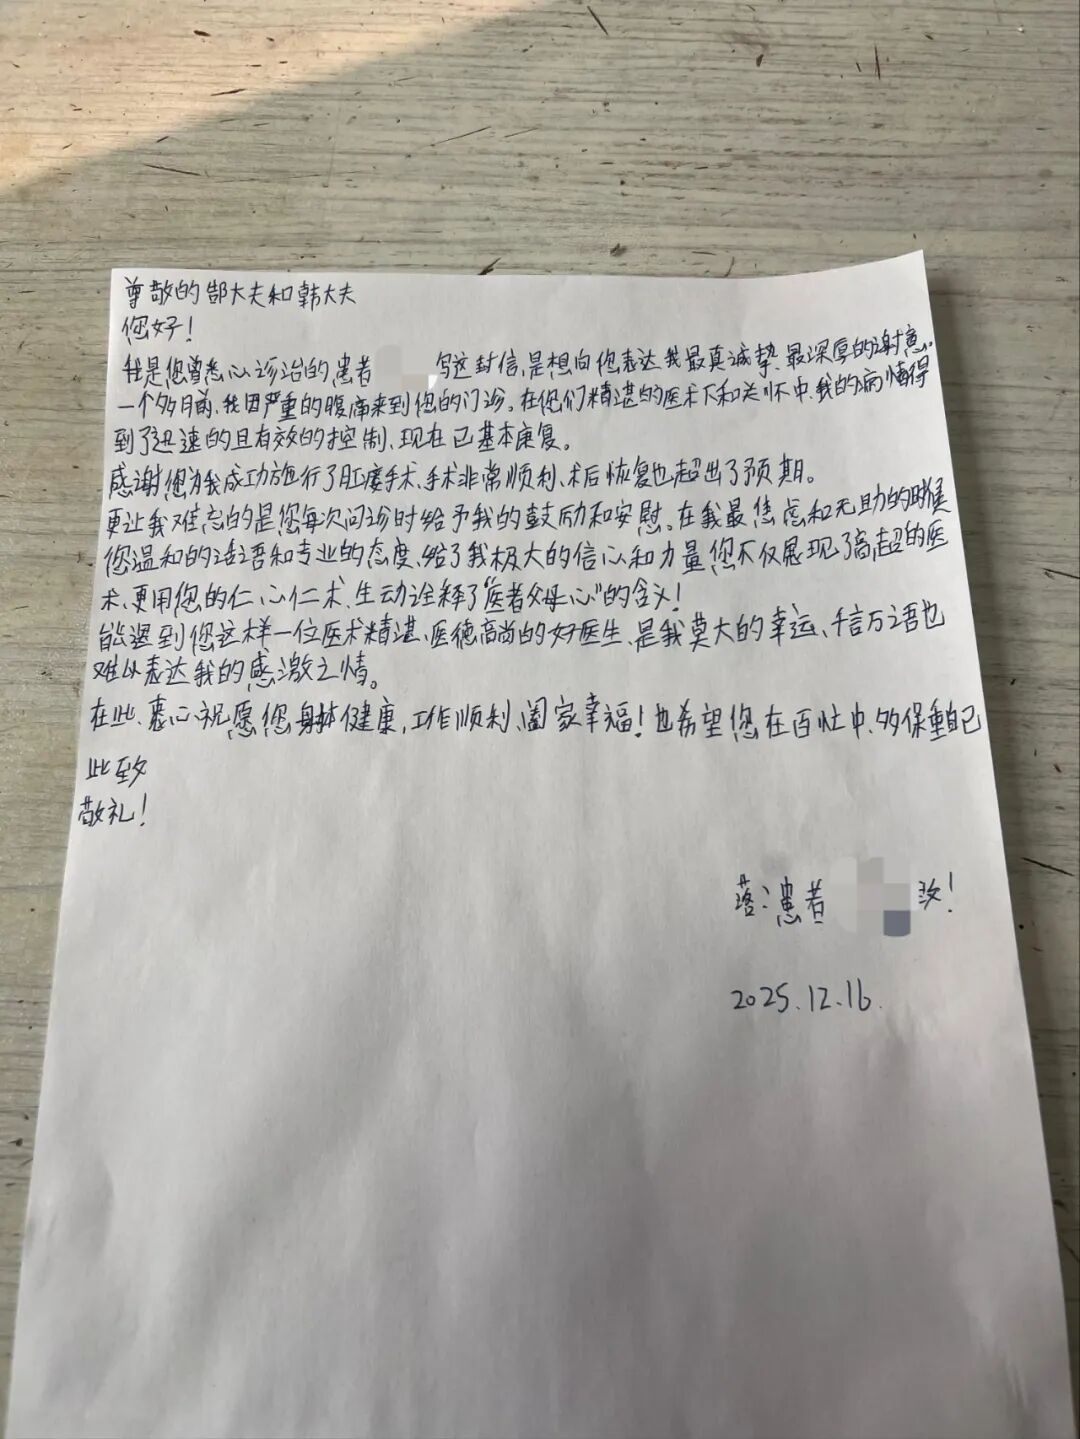 尊敬的郜大夫和韩大夫
您好！
我是您曾悉心诊治的患者 写这封信,是想向你表达我最真诚挚、最深厚的谢意。
一个多月前、我因严重的腹痛来到您的门诊。在您们精湛的医术下和关怀中、我的病情得
到了迅速的且有效的控制、现在已基本康复。
感谢您为我成功施行了肛瘘手术、手术非常顺利、术后恢复也超出了预期。
更让我难忘的是您每次问诊时给予我的鼓励和安慰。在我最焦虑和无助的时候
您温和的话语和专业的态度、给了我极大的信心和力量您不仅展现了高超的医
术、更用您的仁心仁术、生动诠释了“医者父母心”的含义！
能遇到您这样一位医术精湛、医德高尚的好医生、是我莫大的幸运、千言万语也
难以表达我的感激之情。
在此、衷心祝愿您身体健康,工作顺利、阖家幸福！也希望您在百忙中、多保重自己
此致
敬礼！
落:患者 致！
2025.12.16.